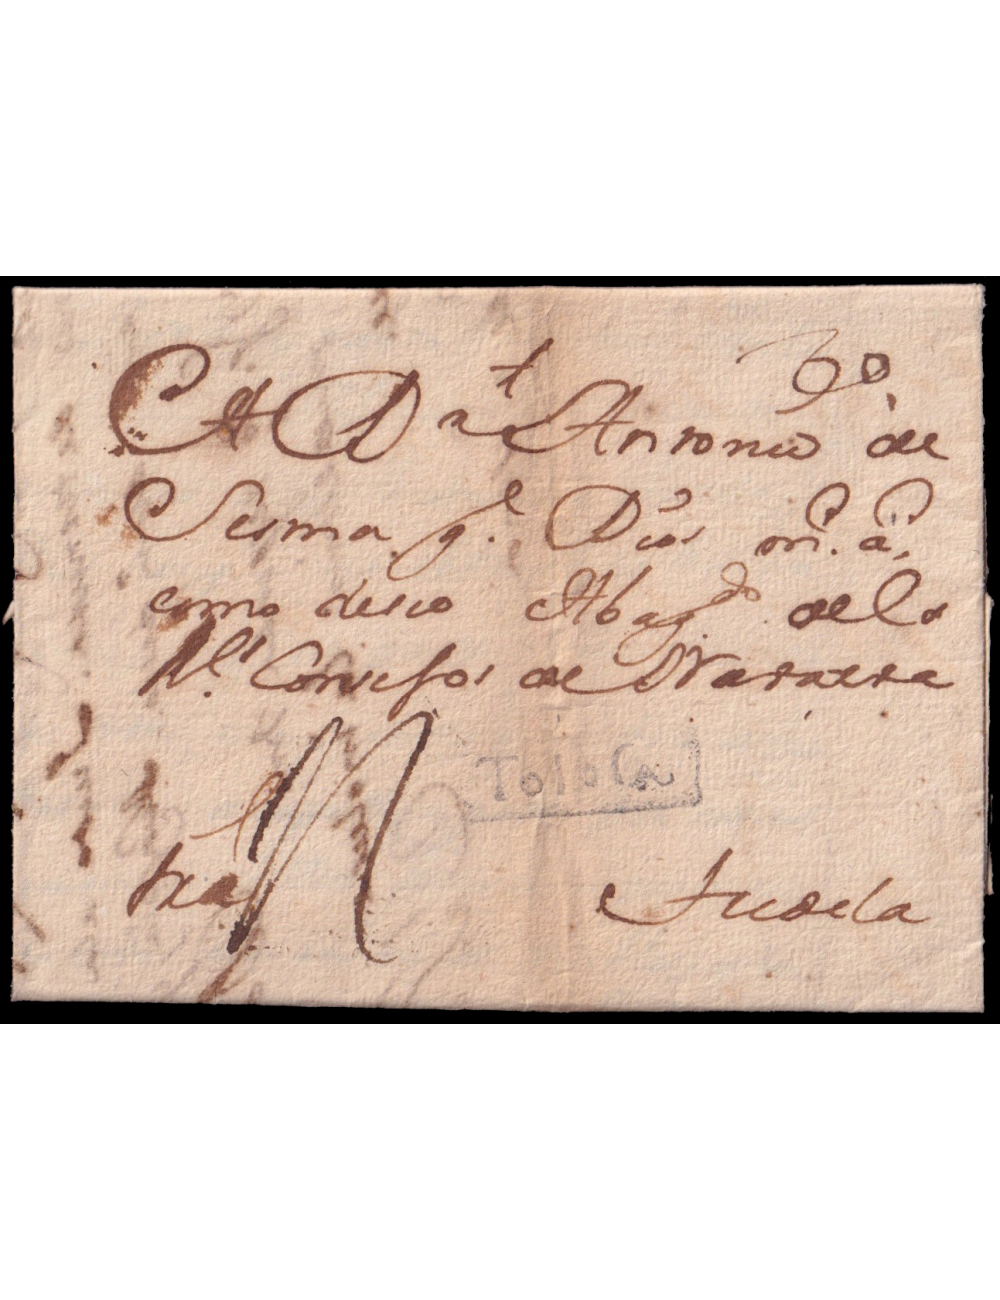 †
A Dn Antonio de
Sesma q.e Dios m.s a.s
como deseo Abag.do de los
R.s Consejos de Navarra
TolosA
Tudela